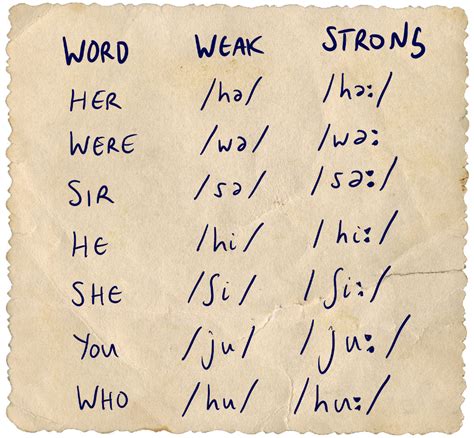 WORD WEAK STRONG
HER /hə/ /hə:/
WERE /wə/ /wə:
SIR /sə/ /sə:/
HE /hi/ /hi:/
SHE /ʃi/ /ʃi:/
YOU /ju/ /ju:/
WHO /hu/ /hu:/